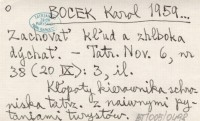 BOCEK Karol 1959...
Zachovať kľud a zhlboka
dýchať. - Tatr. Nov. 6, nr
38 (20 IX): 3, il.
Kłopoty kierownika schro-
niska tatrz. z naiwnymi py-
taniami turystów.